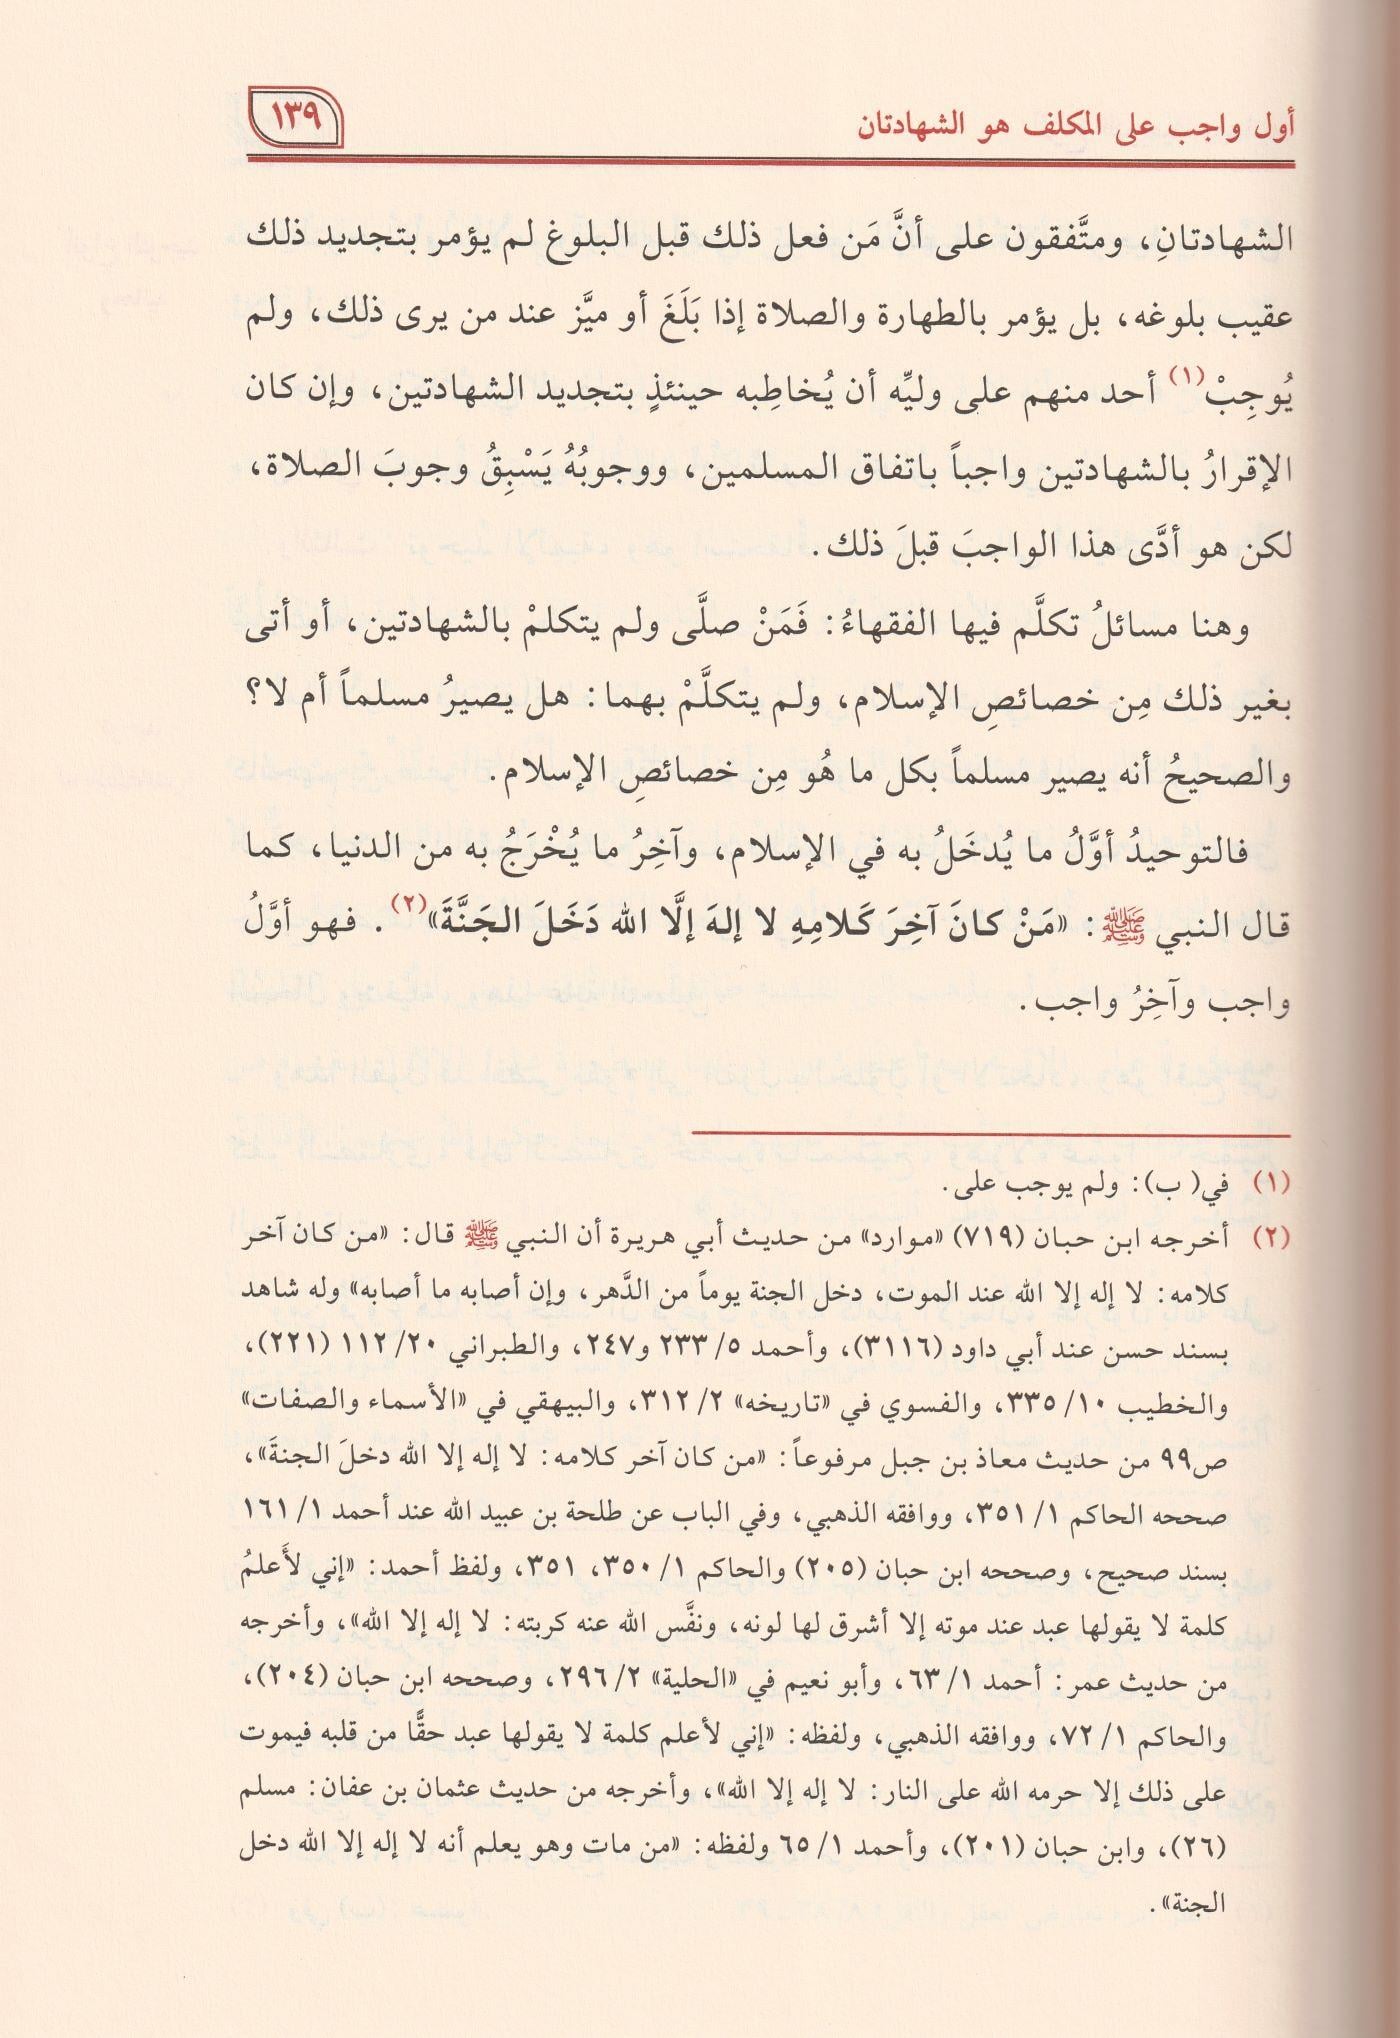 أول واجب على المكلف هو الشهادتان
١٣٩
الشهادتانِ، ومتَّفقون على أنَّ مَن فعل ذلك قبل البلوغ لم يؤمر بتجديد ذلك
عقيب بلوغه، بل يؤمر بالطهارة والصلاة إذا بَلَغَ أو ميَّز عند من يرى ذلك، ولم
يُوجِبْ(١) أحد منهم على وليِّه أن يُخاطِبه حينئذٍ بتجديد الشهادتين، وإن كان
الإقرارُ بالشهادتين واجباً باتفاق المسلمين، ووجوبُهُ يَسْبِقُ وجوبَ الصلاة،
لكن هو أدَّى هذا الواجبَ قبلَ ذلك.
وهنا مسائلُ تكلَّم فيها الفقهاءُ: فَمَنْ صلَّى ولم يتكلمْ بالشهادتين، أو أتى
بغير ذلك مِن خصائصِ الإسلام، ولم يتكلَّمْ بهما: هل يصيرُ مسلماً أم لا؟
والصحيحُ أنه يصير مسلماً بكل ما هُو مِن خصائصِ الإسلام.
فالتوحيدُ أوَّلُ ما يُدخَلُ به في الإسلام، وآخِرُ ما يُخْرَجُ به من الدنيا، كما
قال النبي ﷺ: «مَنْ كانَ آخِرَ كَلامِهِ لا إلهَ إلَّا الله دَخَلَ الجَنَّةَ»(٢). فهو أوَّلُ
واجب وآخِرُ واجب.
(١) في( ب): ولم يوجب على.
(٢) أخرجه ابن حبان (٧١٩) «موارد» من حديث أبي هريرة أن النبي ﷺ قال: «من كان آخر
كلامه: لا إله إلا الله عند الموت، دخل الجنة يوماً من الدَّهر، وإن أصابه ما أصابه» وله شاهد
بسند حسن عند أبي داود (٣١١٦)، وأحمد ٥/ ٢٣٣ و٢٤٧، والطبراني ٢٠/ ١١٢ (٢٢١)،
والخطيب ١٠/ ٣٣٥، والفسوي في «تاريخه» ٢/ ٣١٢، والبيهقي في «الأسماء والصفات»
ص٩٩ من حديث معاذ بن جبل مرفوعاً: «من كان آخر كلامه: لا إله إلا الله دخلَ الجنةَ»،
صححه الحاكم ١/ ٣٥١، ووافقه الذهبي، وفي الباب عن طلحة بن عبيد الله عند أحمد ١/ ١٦١
بسند صحيح، وصححه ابن حبان (٢٠٥) والحاكم ١/ ٣٥٠، ٣٥١، ولفظ أحمد: «إني لأَعلمُ
كلمة لا يقولها عبد عند موته إلا أشرق لها لونه، ونفَّس الله عنه كربته: لا إله إلا الله»، وأخرجه
من حديث عمر: أحمد ١/ ٦٣، وأبو نعيم في «الحلية» ٢/ ٢٩٦، وصححه ابن حبان (٢٠٤)،
والحاكم ١/ ٧٢، ووافقه الذهبي، ولفظه: «إني لأعلم كلمة لا يقولها عبد حقًّا من قلبه فيموت
على ذلك إلا حرمه الله على النار: لا إله إلا الله»، وأخرجه من حديث عثمان بن عفان: مسلم
(٢٦)، وابن حبان (٢٠١)، وأحمد ١/ ٦٥ ولفظه: «من مات وهو يعلم أنه لا إله إلا الله دخل
الجنة».